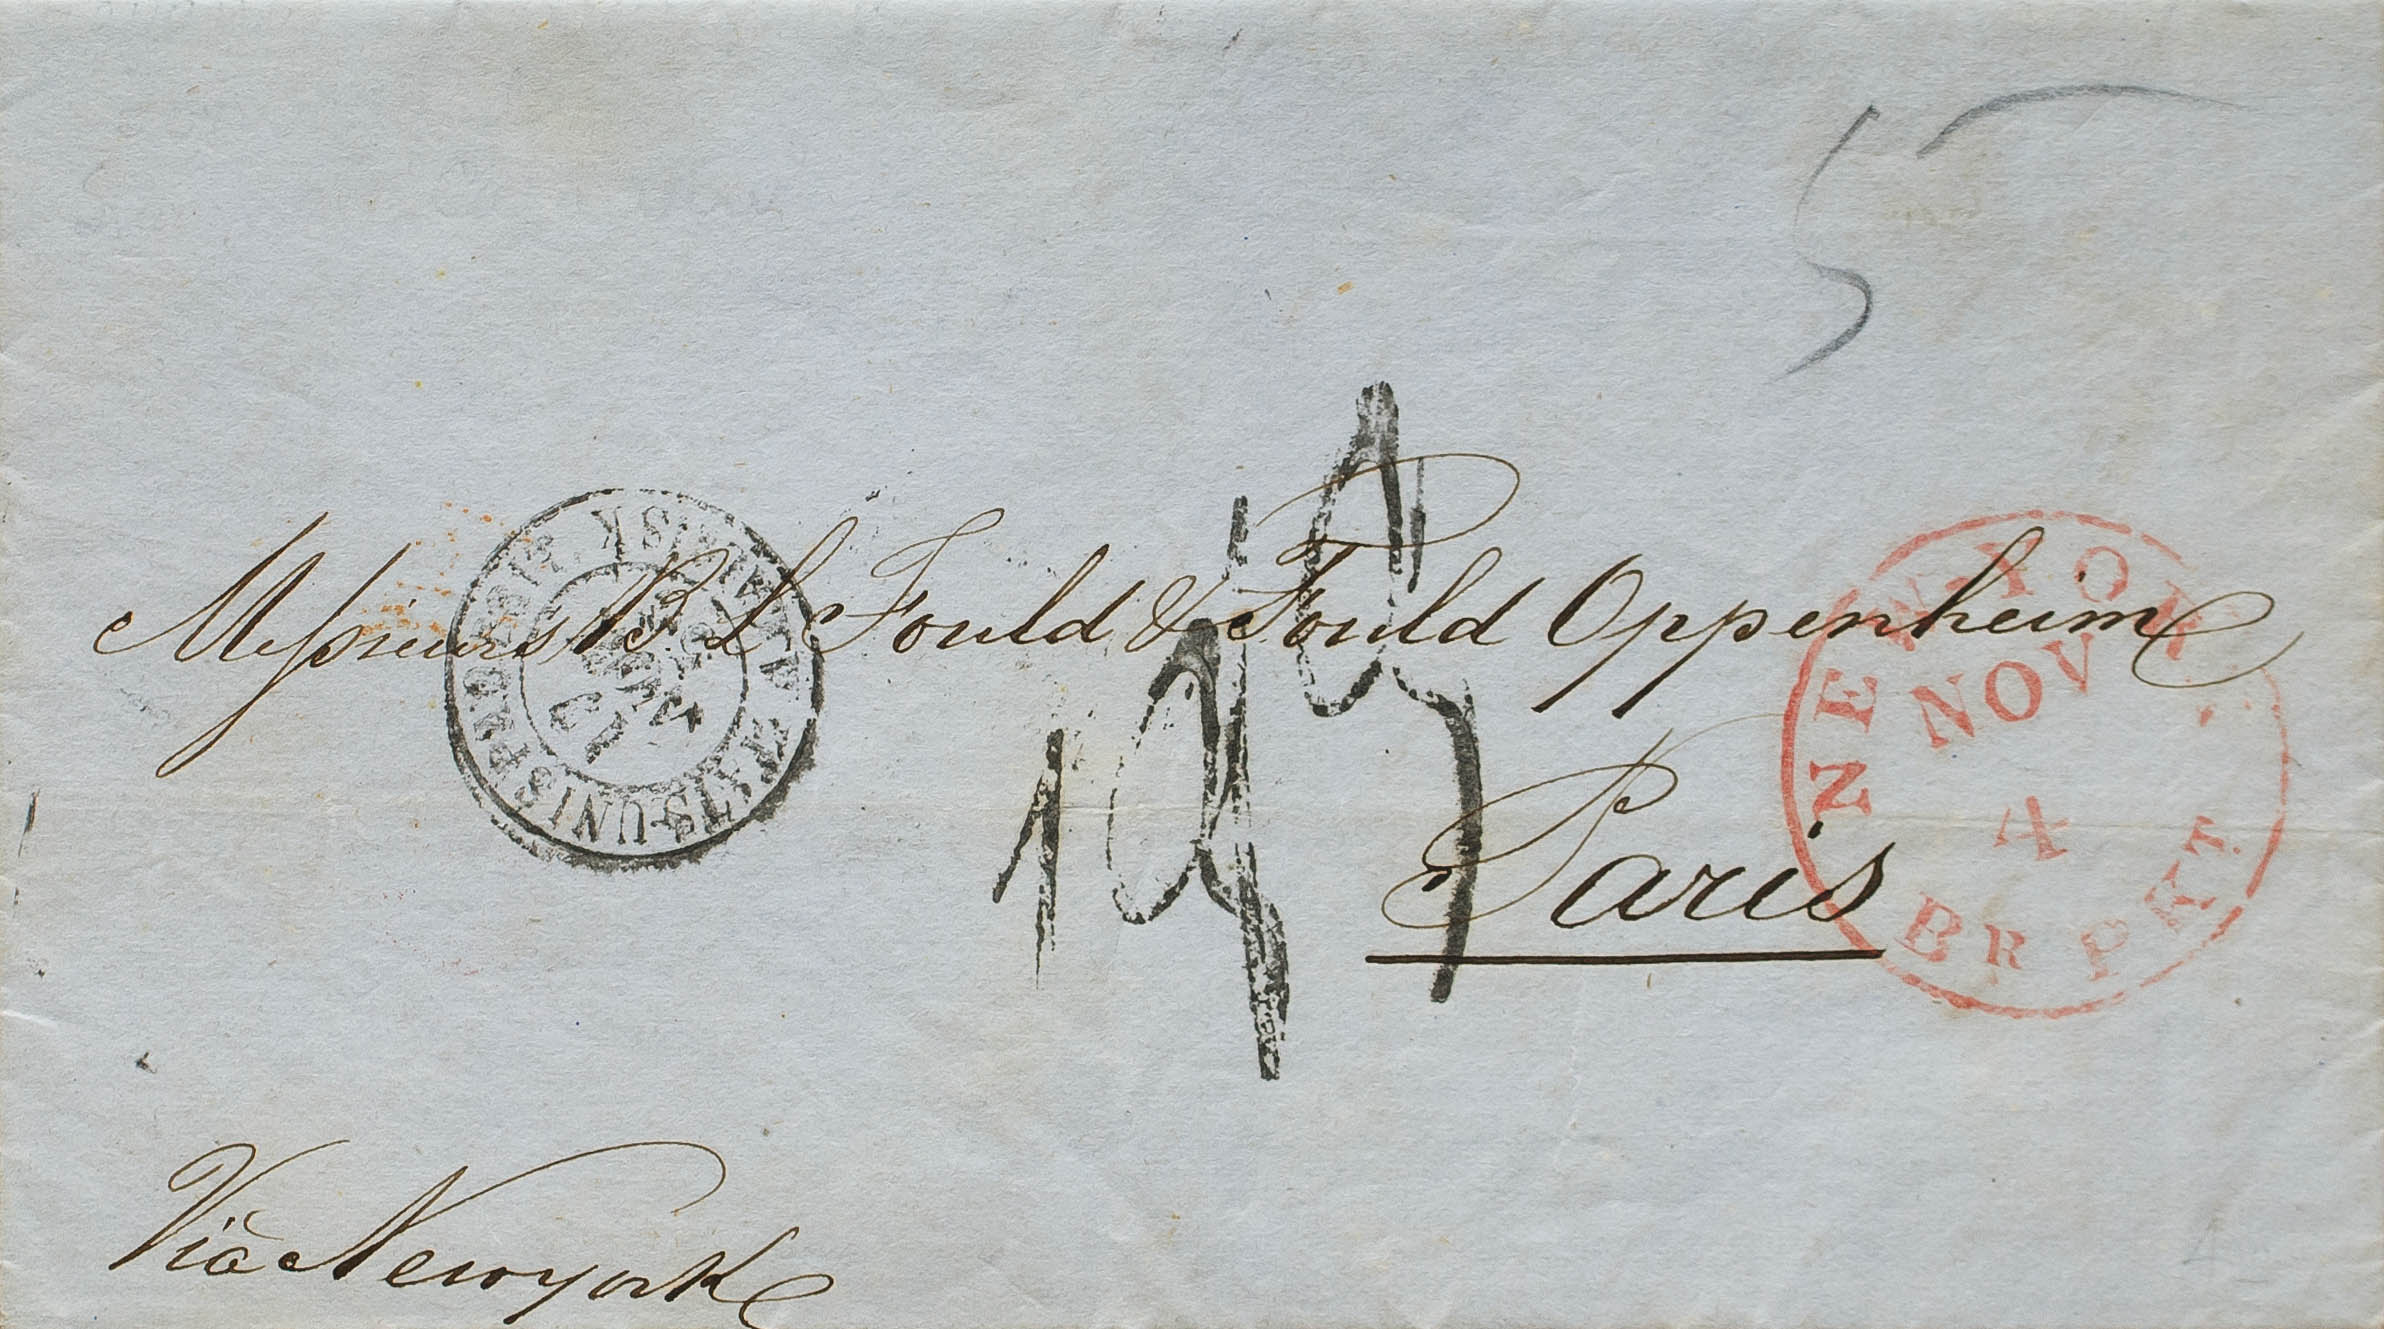 5
Messieurs B L Fould & Fould Oppenheim
Paris
Vià Newyork
NEW-YORK
NOV
4
BR PKT.
ETATS-UNIS